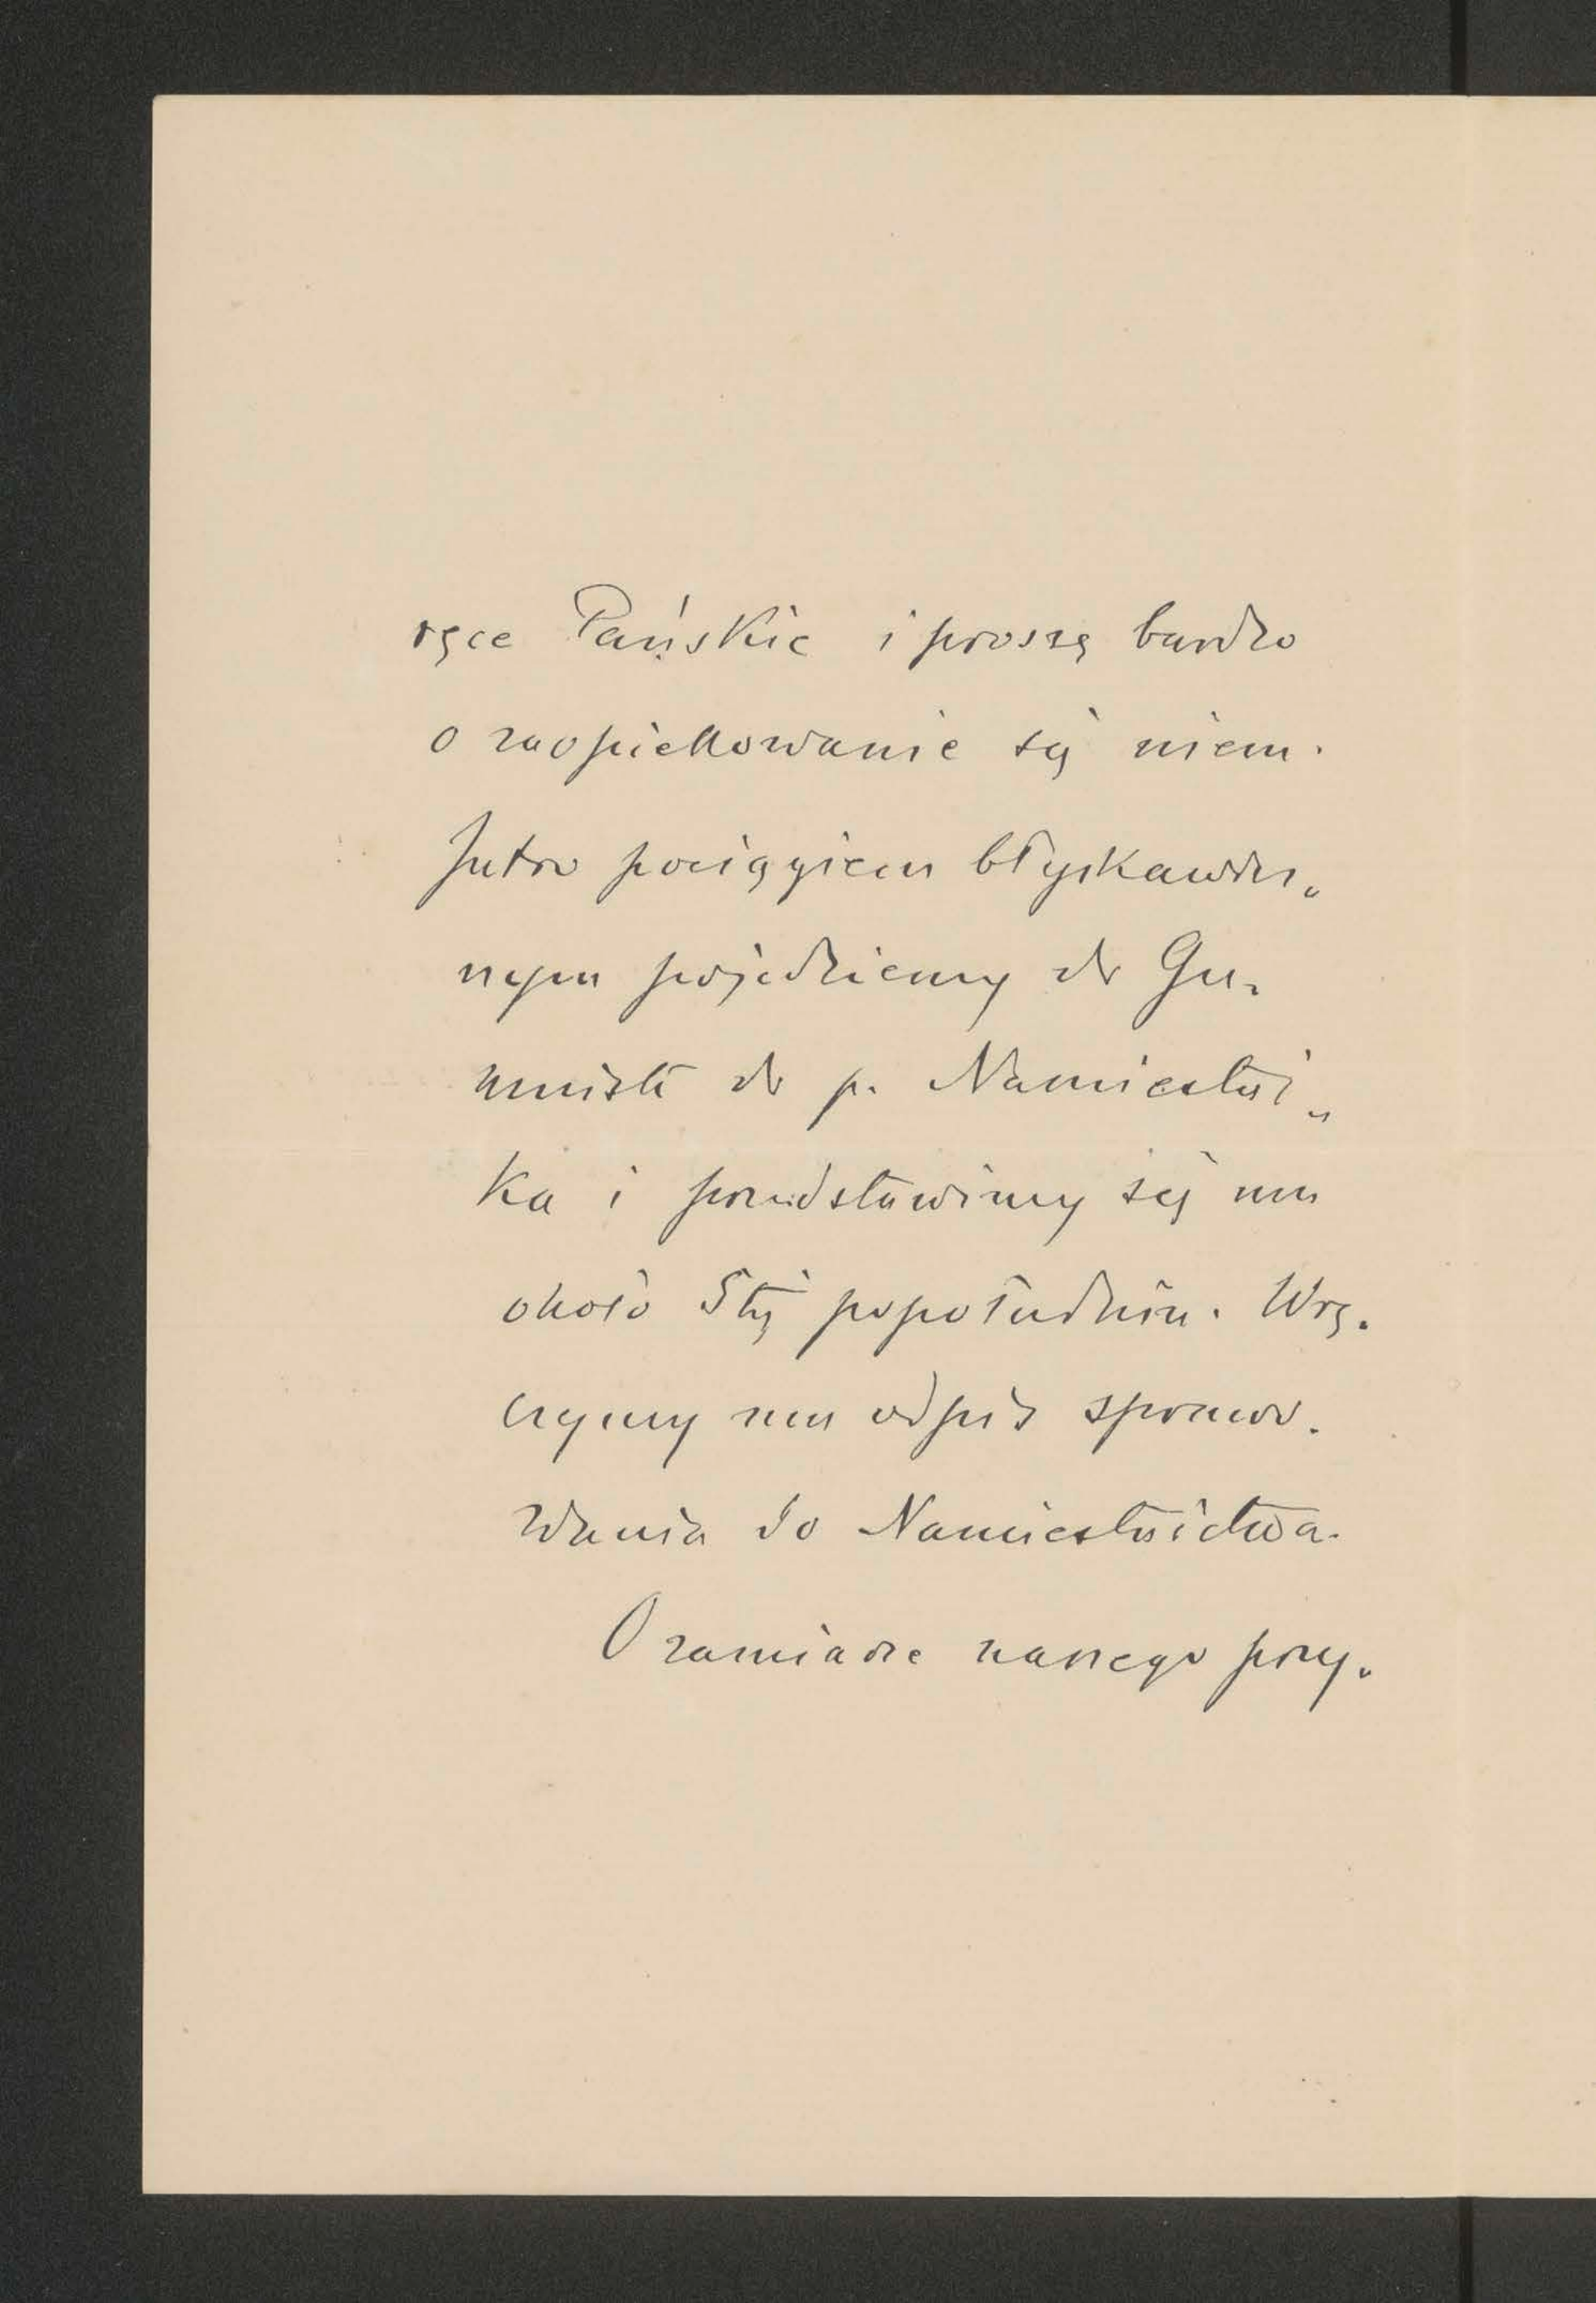 ręce Pańskie i proszę bardzo
o zaopiekowanie się niem.
Jutro pociągiem błyskawicz„
nym pojedziemy do Gu-
mnisk do p. Namiestni„
ka i przedstawimy się mu
około 5tej popołudniu. Wrę-
czymy mu odpis sprawo-
wania do Namiestnictwa.
O zamiarze naszego przy-